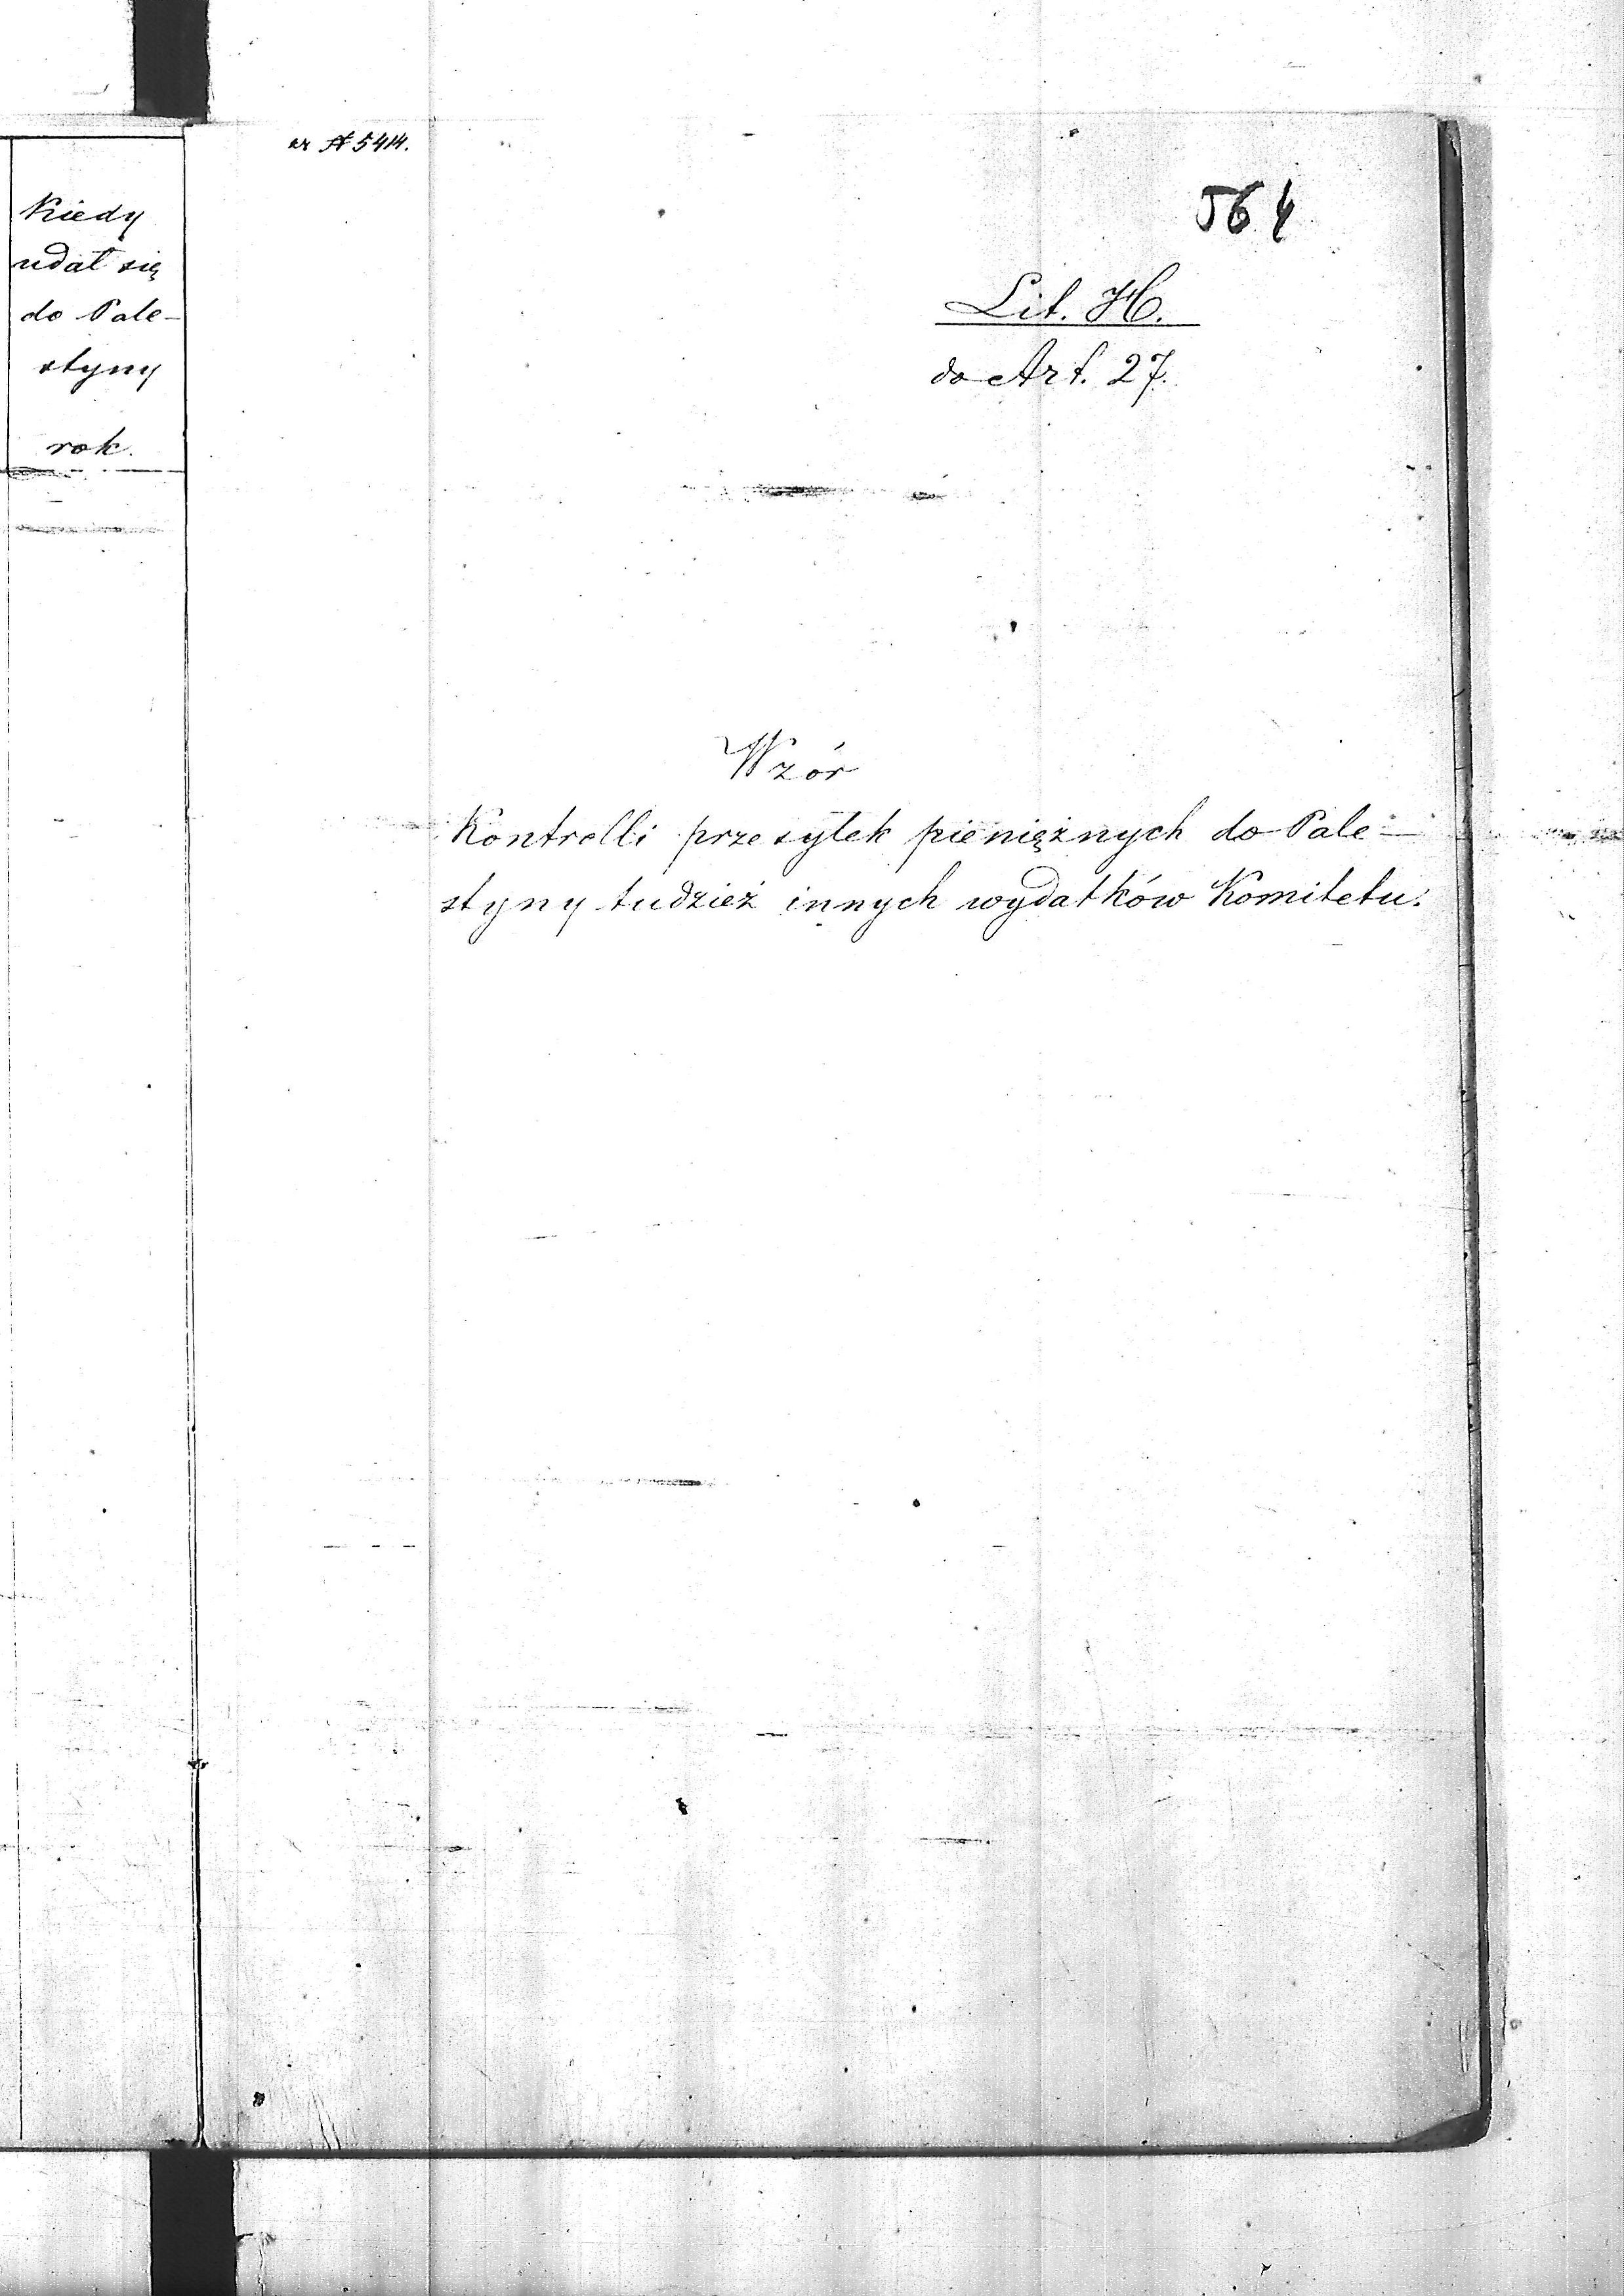 Kiedy
udał się
do Pale-
styny
rok.
ar № 5414.
564
Lit. H.
do Art. 27.
Wzór
Kontrolli przesyłek pieniężnych do Pale-
styny tudzież innych wydatków Komitetu.